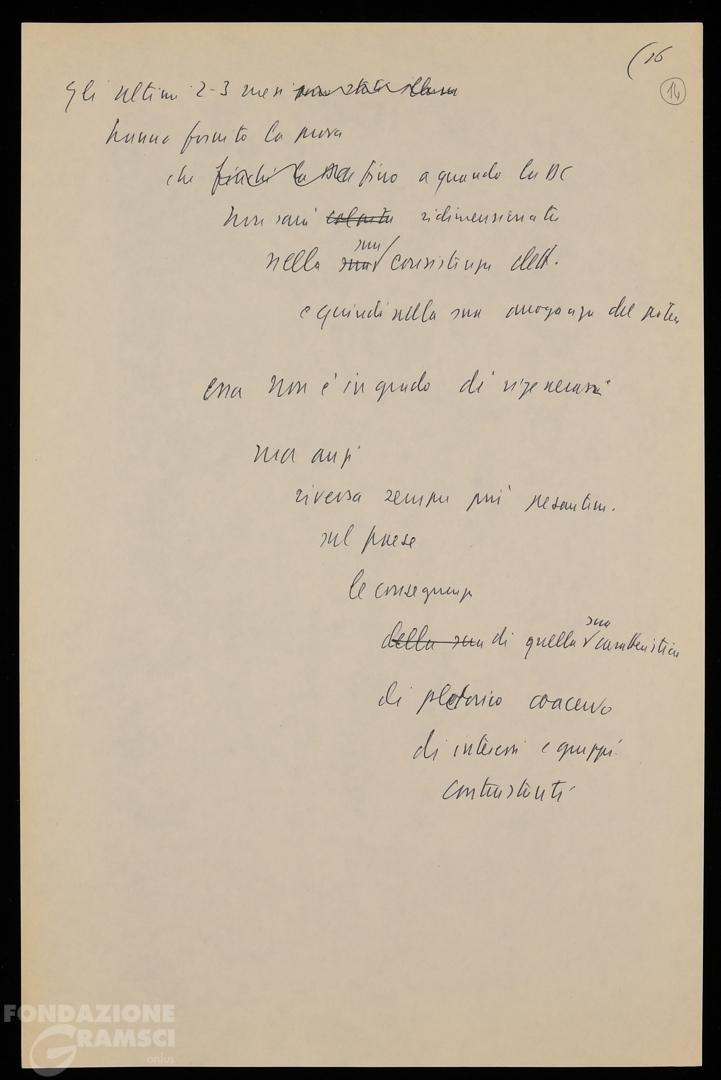 (16
14
Gli ultimi 2-3 mesi
hanno fornito la prova
che finchè la DC fino a quando la DC
non sarà calata ridimensionata
nella sua sua consistenza elett.
e quindi nella sua arroganza del potere
essa non è in grado di rigenerarsi
ma anzi
riversa sempre più pesantem.
sul paese
le conseguenze
della sua di quella sua caratteristica
di pletorico coacervo
di interessi e gruppi
contrastanti
FONDAZIONE
GRAMSCI
onlus